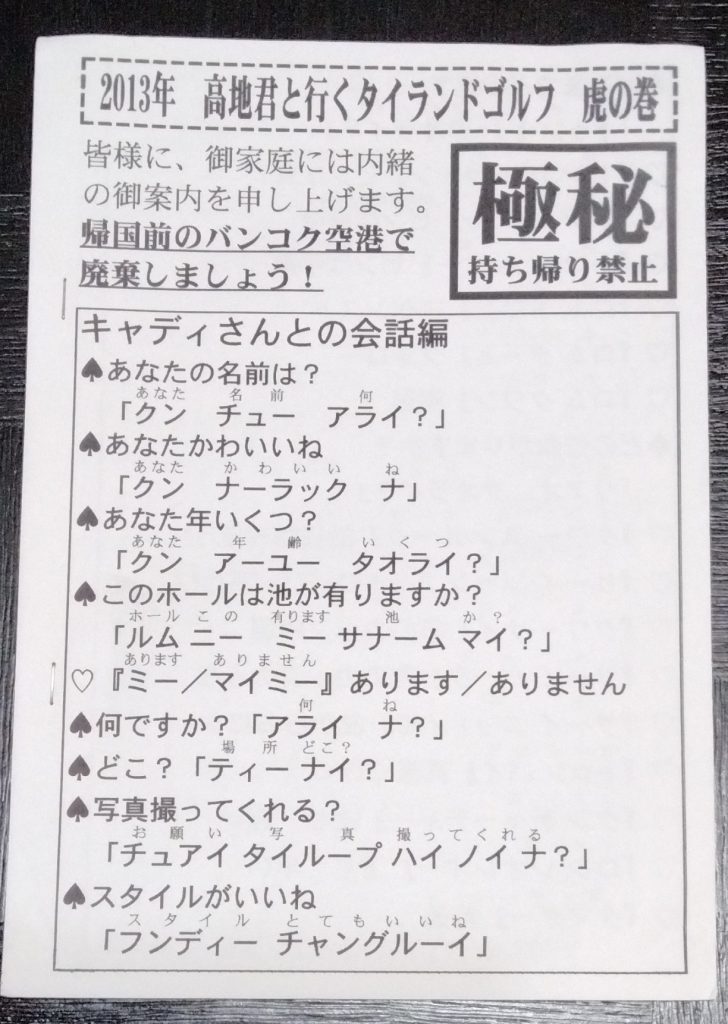 2013年　高地君と行くタイランドゴルフ　虎の巻
皆様に、御家庭には内緒
の御案内を申し上げます。
帰国前のバンコク空港で
廃棄しましょう！
極秘
持ち帰り禁止
キャディさんとの会話編
♠あなたの名前は？
あなた　名前　何
「クン　チュー　アライ？」
♠あなたかわいいね
あなた　かわいい　ね
「クン　ナーラック　ナ」
♠あなた年いくつ？
あなた　年齢　いくつ
「クン　アーユー　タオライ？」
♠このホールは池が有りますか？
ホール この 有ります 池 か？
「ルム ニー　ミー サナーム マイ？」
あります ありません
♡『ミー／マイミー』あります／ありません
何　ね
♠何ですか？「アライ　ナ？」
場所 どこ？
♠どこ？「ティー ナイ？」
♠写真撮ってくれる？
お願い　写真　撮ってくれる
「チュアイ タイループ ハイ ノイ ナ？」
♠スタイルがいいね
スタイル　とてもいいね
「フンディー チャングルーイ」